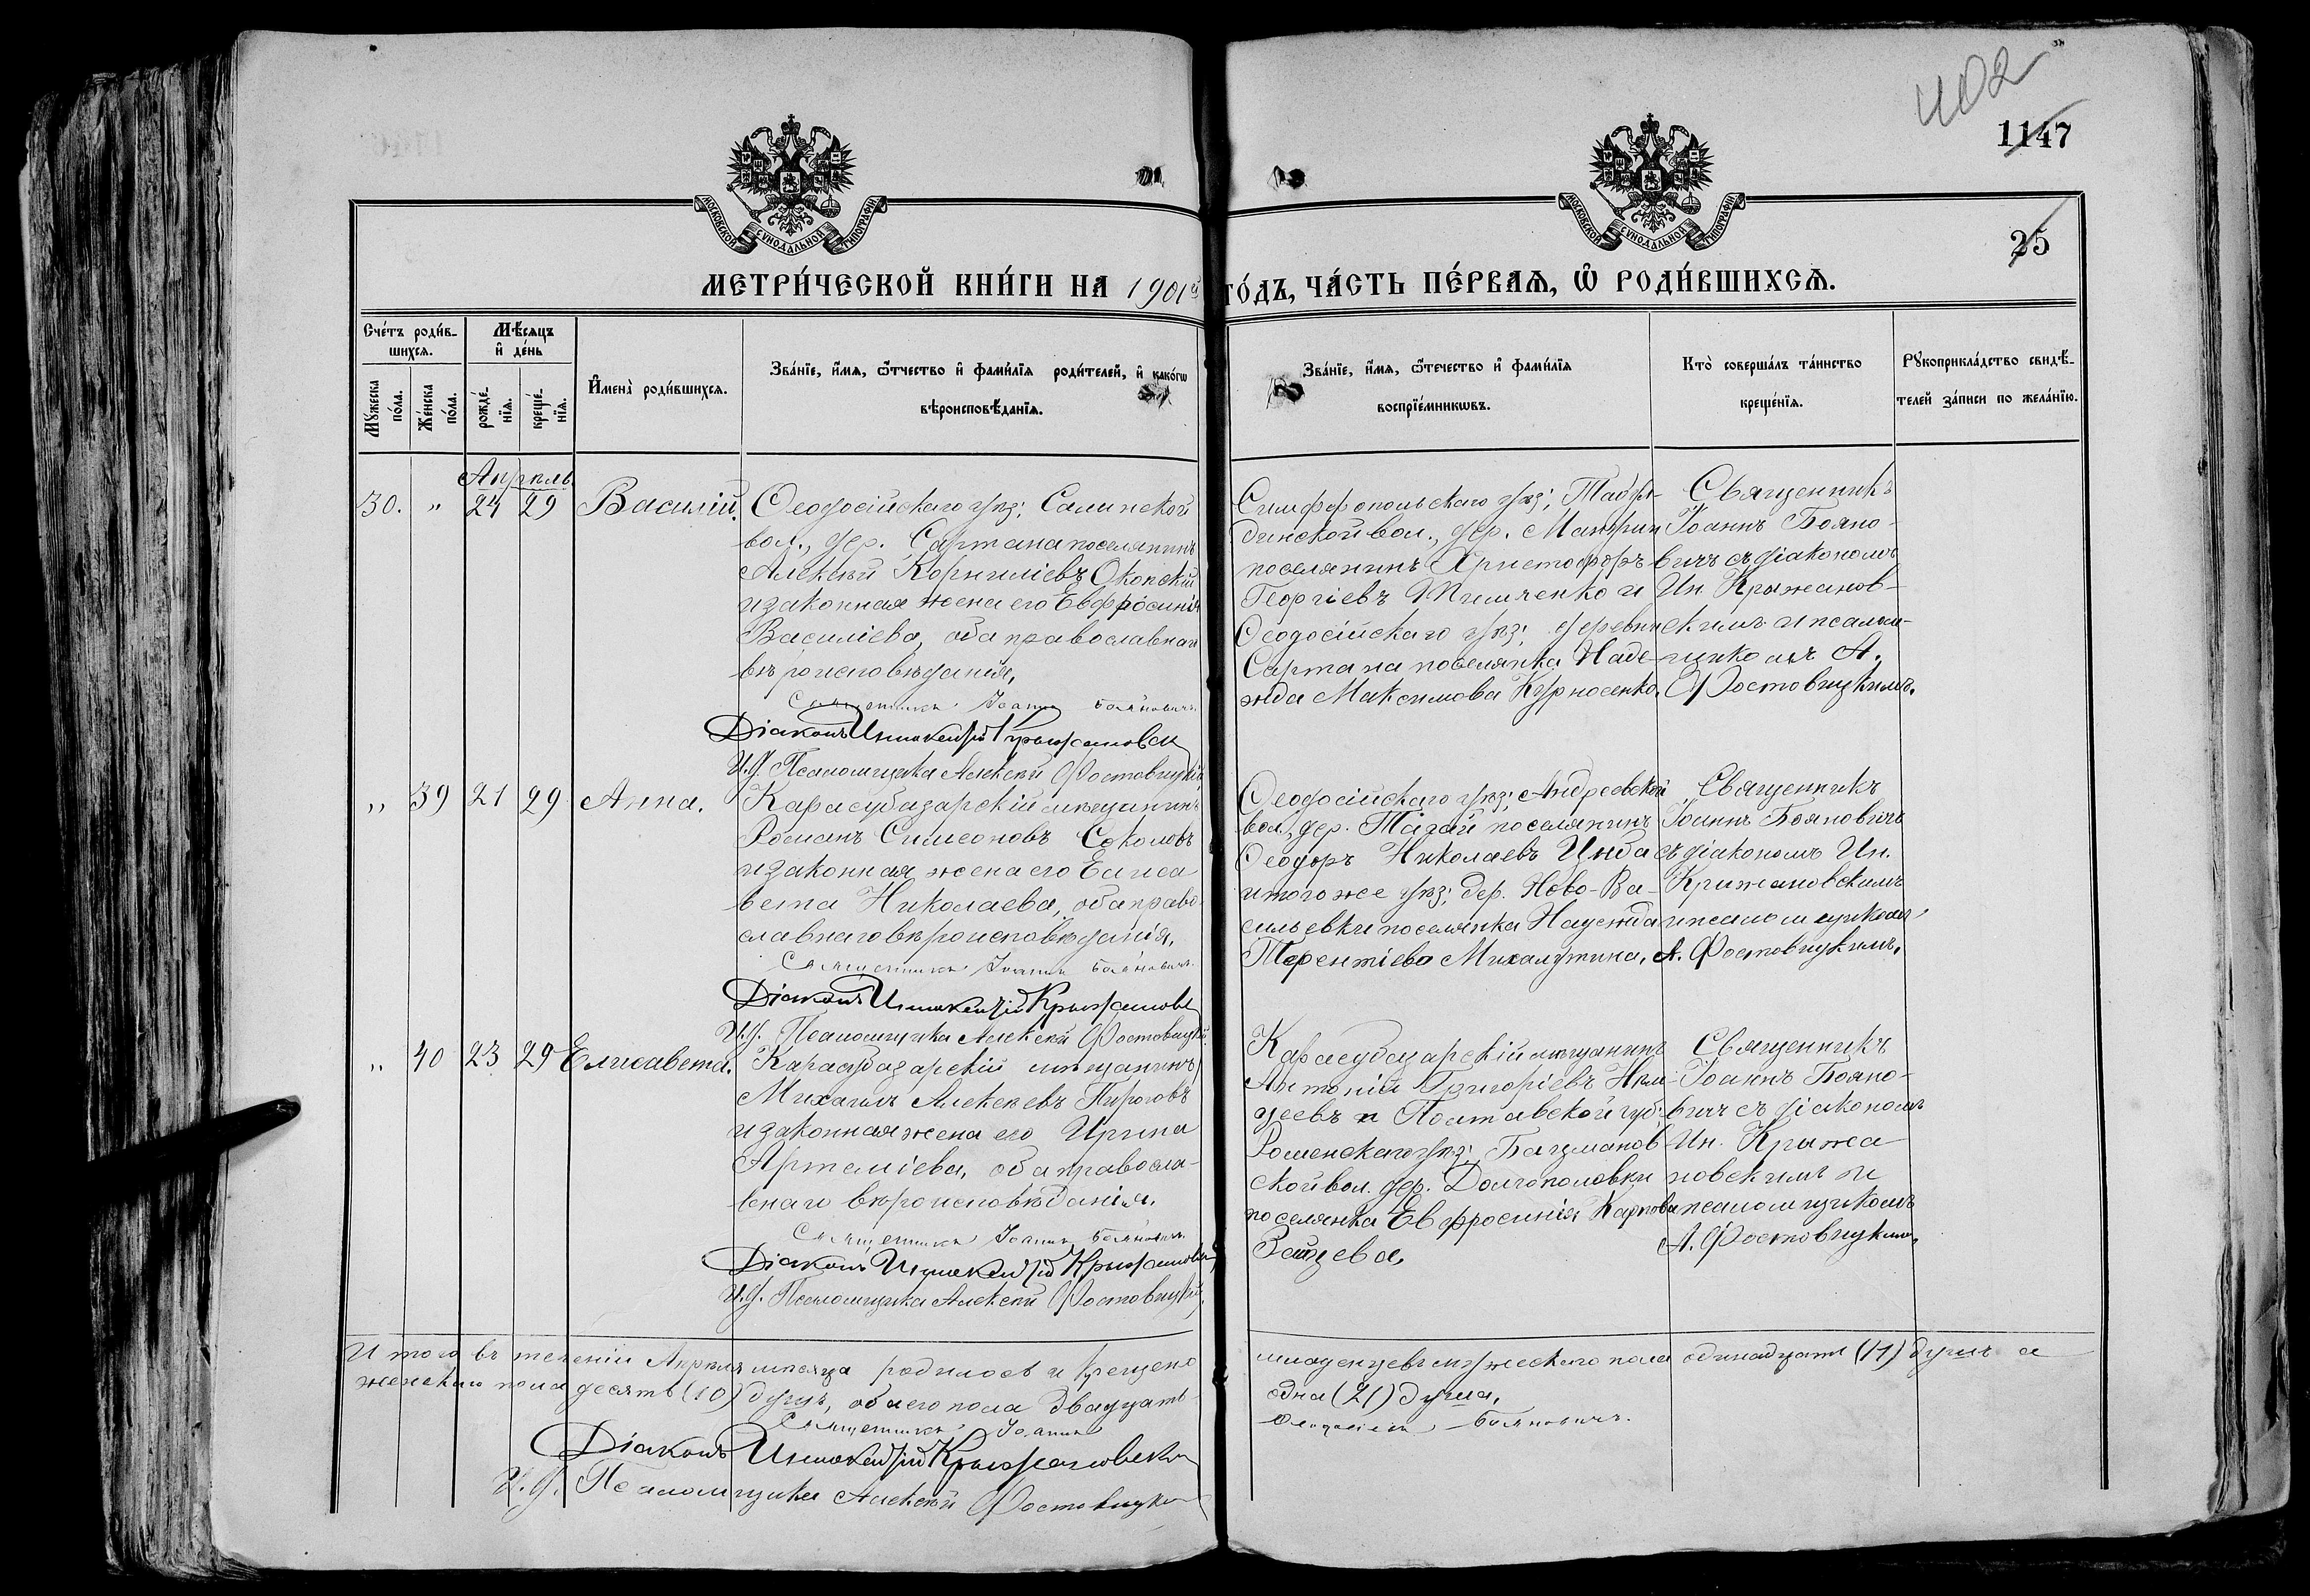 402
1147
25
МОСКОВСКОЙ СѴНОДАЛЬНОЙ ТИПОГРАФІИ
МОСКОВСКОЙ СѴНОДАЛЬНОЙ ТИПОГРАФІИ
МЕТРИ́ЧЕСКОЙ КНИ́ГИ НА 1901й ГО́ДЪ, ЧА́СТЬ ПЕ́РВАѦ, Ѡ҆ РОДИ́ВШИХСѦ.
Сче́тъ роди́в-
шихсѧ.
Мꙋ́жеска по́ла.
Же́нска по́ла.
Мѣ́сѧцъ
и҆ де́нь
рожде́-
нїѧ.
креще́-
нїѧ.
И҆мена̀ роди́вшихсѧ.
Зва́нїе, и҆́мѧ, ѻ҆́тчество и҆ фами́лїѧ роди́телей, и҆ како́гѡ
вѣроисповѣ́данїѧ.
Зва́нїе, и҆́мѧ, ѻ҆те́чество и҆ фами́лїѧ
воспрїе́мникѡвъ.
Кто̀ соверша́лъ та́инство
креще́нїѧ.
Рꙋкоприкла́дство свидѣ́-
телей за́писи по жела́нїю.
Апрѣль
30. " 24 29 Василій.
Ѳеодосійскаго уѣз; Салинской
вол., дер. Сартана поселянинъ
Алексѣй Корниліевъ Оконскій
и законная жена его Евфросинія
Василіева, оба православнаго
вѣроисповѣданія,
Священникъ Іоаннъ Бояновичъ
Діаконъ Иннокентій Крыжановск
И.д. Псаломщика Алексѣй Фостовицкій
Симферопольскаго уѣз;
динской вол., дер.
поселянинъ Христофоръ
Георгіевъ и
Ѳеодосійскаго уѣз; деревни
Сартана поселянка Наде-
жда Максимова Курносенко.
Священникъ
Іоаннъ Бояно-
вичъ съ діакономъ
Ин. Крыжанов-
скимъ и псалом-
щикомъ А.
Фостовицкимъ.
" 39 21 29 Анна.
Карасубазарскій мѣщанинъ
Романъ Симеоновъ Соколовъ
и законная жена его Елиса
вета Николаева, оба право
славнаго вѣроисповѣданія,
Священникъ Іоаннъ Бояновичъ
Діаконъ Иннокентій Крыжановс
И.д. Псаломщика Алексѣй Фостовицкій
Ѳеодосійскаго уѣз; Андреевской
вол., дер. поселянинъ
Ѳеодоръ Николаевъ Цыба
и того же уѣз; дер. Ново-Ва-
сильевки поселянка Надежда
Терентіева
Священникъ
Іоаннъ Бояновичъ
съ діакономъ Ин.
Крижановскимъ
и псаломщикомъ
А. Фостовицкимъ.
" 40 23 29 Елисавета.
Карасубазарскій мѣщанинъ
Михаилъ Алексѣевъ Пироговъ
и законная жена его Ирина
Артеміева, оба правосла-
внаго вѣроисповѣданія.
Священникъ Іоаннъ Бояновичъ
Діаконъ Иннокентій Крыжановск
И.д. Псаломщика Алексѣй Фостовицкій,
Карасубазарскій мѣщанинъ
Антоній Григоріевъ
и Полтавской губ;
Роменскаго уѣз;
ской вол. дер. Долгополовки
поселянка Евфросинія Карпова
Зайцева,
Священникъ
Іоаннъ Бояно-
вичъ съ діакономъ
Ин. Крыжа-
новскимъ и
псаломщикомъ
А. Фостовицкимъ.
Итого въ теченіи Апрѣля мѣсяца родилось и крещено младенцевъ мужескаго пола одинадцать (11) душъ а
женскаго пола десять (10) душъ, обоего пола двадцать одна (21) душа,
Священникъ Іоаннъ Бояновичъ.
Діаконъ Иннокентій Крыжановскі
И.д. Псаломщика Алексѣй Фостовицкі